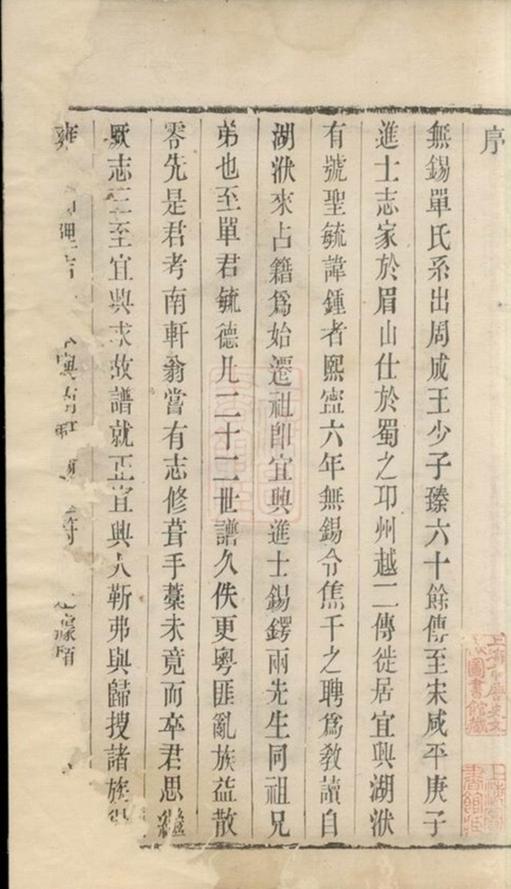 序
無錫單氏系出周成王少子臻六十餘傳至宋咸平庚子
進士志家於眉山仕於蜀之卭州越二傳徙居宜興湖㳇
有號聖毓諱鍾者熙寍六年無錫令焦千之聘爲敎讀自
湖㳇來占籍爲始遷祖卽宜興進士錫鍔兩先生同祖兄
弟也至單君毓德凡二十二世譜久佚更粵匪亂族益散
零先是君考南軒翁嘗有志修葺手藁未竟而卒君思繼
厥志三至宜興求故譜就正宜興人靳弗與歸搜諸族